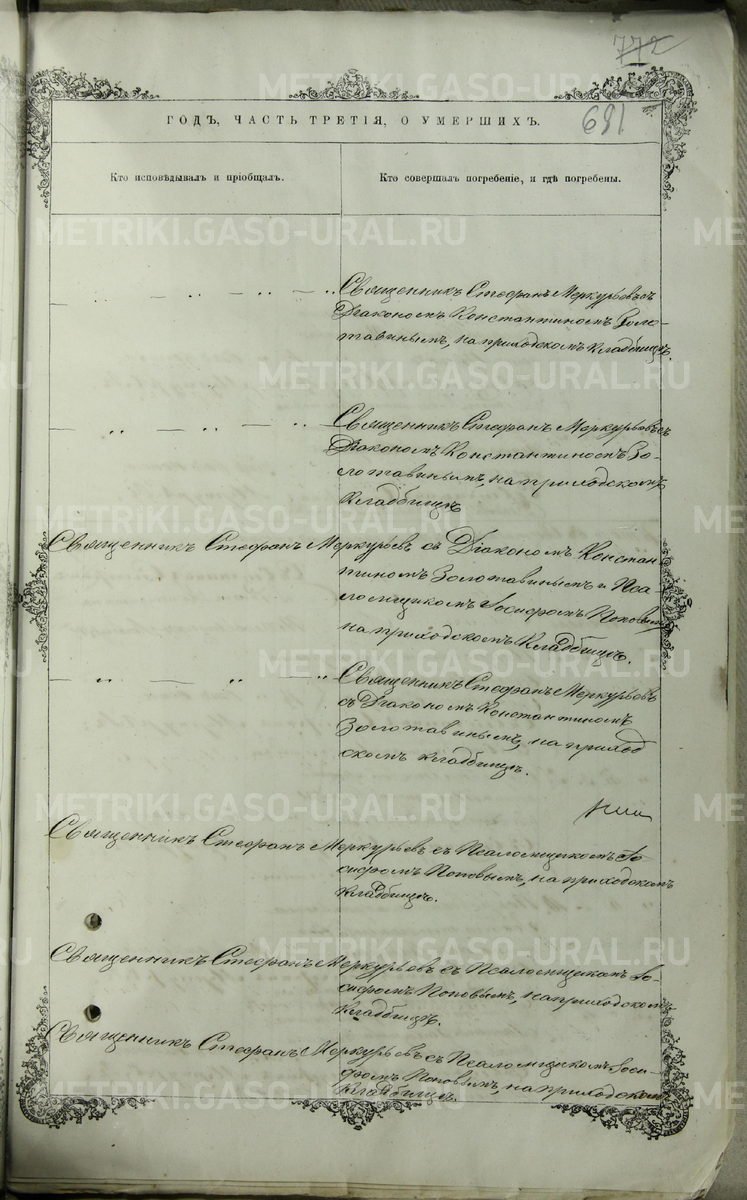 772
ГОДЪ, ЧАСТЬ ТРЕТІЯ, О УМЕРШИХЪ.
681
Кто исповѣдывалъ и пріобщалъ.
Кто совершалъ погребеніе, и гдѣ погребены.
Священникъ Стефанъ Меркурьевъ съ
Діакономъ Константиномъ Золо-
тавинымъ, на приходскомъ кладбищѣ.
Священникъ Стефанъ Меркурьевъ съ
Діакономъ Константиномъ Зо-
лотавинымъ, на приходскомъ
кладбищѣ
Священникъ Стефанъ Меркурьевъ съ Діакономъ Констан-
тиномъ Золотавинымъ и Пса-
ломщикомъ Іосифомъ Поповымъ
на приходскомъ кладбищѣ.
Священникъ Стефанъ Меркурьевъ
съ Діакономъ Константиномъ
Золотавинымъ, на приход
скомъ кладбищѣ.
Священникъ Стефанъ Меркурьевъ съ Псаломщикомъ Іо-
сифомъ Поповымъ, на приходскомъ
кладбищѣ.
Священникъ Стефанъ Меркурьевъ съ Псаломщикомъ Іо-
сифомъ Поповымъ, на приходскомъ
кладбищѣ.
Священникъ Стефанъ Меркурьевъ съ Псаломщикомъ Іоси-
фомъ Поповымъ, на приходскомъ
кладбищѣ.
METRIKI.GASO-URAL.RU